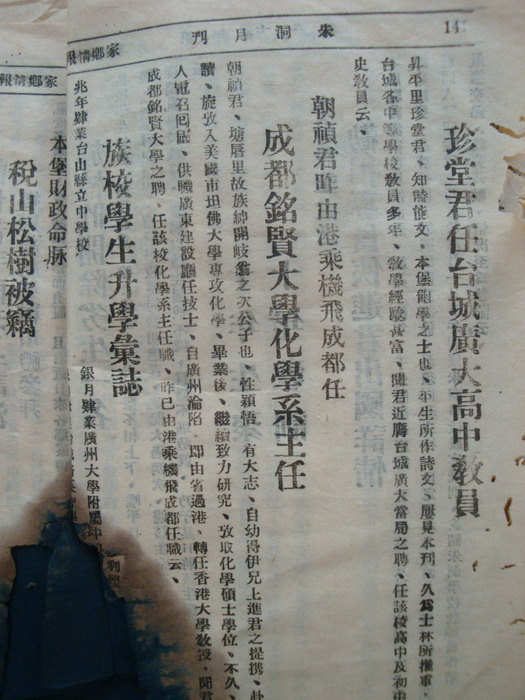 14
朱洞月刊
家鄉情報
珍堂君任台城廣大高中教員
昇平里珍堂君、知時能文、本堡勤學之士也、平生所作詩文、屢見本刊、久爲士林所推重
台城各中等學校教員多年、教學經驗甚富、聞君近膺台城廣大當局之聘、任該校高中及初中
史教員云、
朝禎君昨由港乘機飛成都任
成都銘賢大學化學系主任
朝禎君、塘唇里故族紳開岐翁之六公子也、性穎悟、有大志、自幼得伊兄上進君之提携、赴
讀、旋攷入美國市坦佛大學專攻化學、畢業後、繼續致力研究、攷取化學碩士學位、不久、
人電召回國、供職廣東建設廳任技士、自廣州淪陷、即由省過港、轉任香港大學教授、聞君
成都銘賢大學之聘、任該校化學系主任職、昨已由港乘機飛成都任職云、
族棱學生升學彙誌
兆年肄業台山縣立中學校
銀月肄業廣州大學附屬中
家鄉情報
本堡財政命脉
稅山松樹被竊